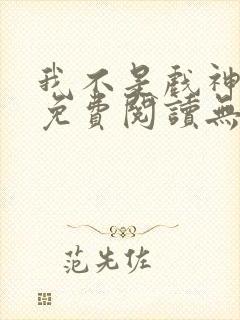 我不是戲神
免費閱讀無
范先佐